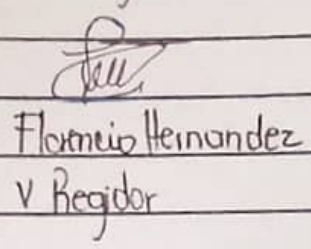 Florencio Hernandez
V Regidor